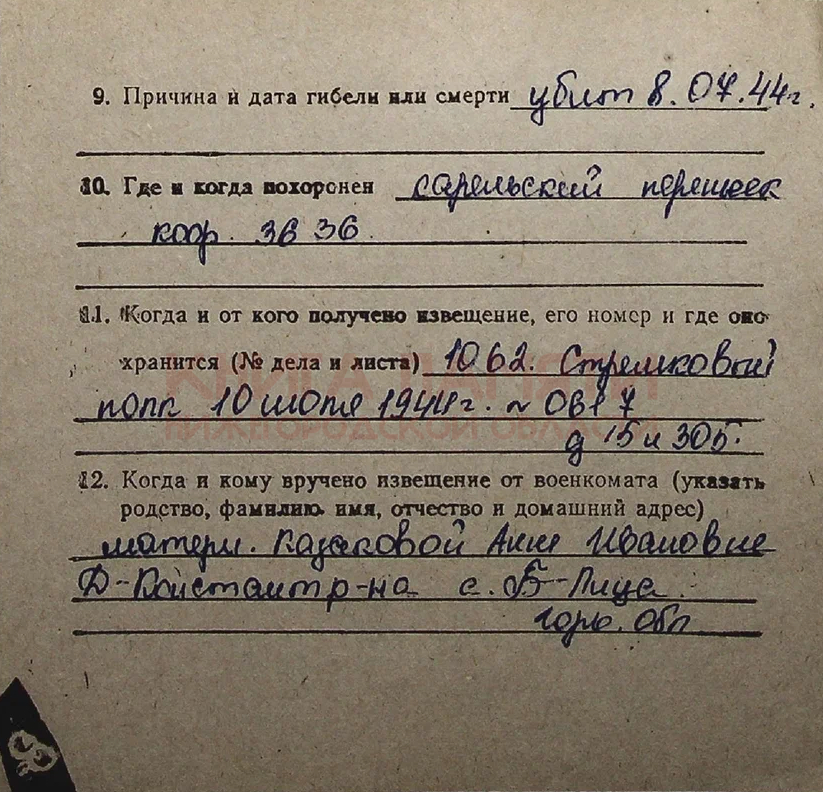 9. Причина и дата гибели или смерти убит 8.07.44г.
10. Где и когда похоронен сарельский перешеек
коор. 36 36
11. Когда и от кого получено извещение, его номер и где оно
хранится (№ дела и листа) 1062. Стрелковый
КНИГА ПАМЯТИ
полк 10 июля 1944г. № 0617
НИЖЕГОРОДСКОЙ ОБЛАСТИ
д 15 л 305.
12. Когда и кому вручено извещение от военкомата (указать
родство, фамилию, имя, отчество и домашний адрес)
матери. Казаковой Анне Ивановне
Д-Констант р-на с. Б-Лица.
горь. обл